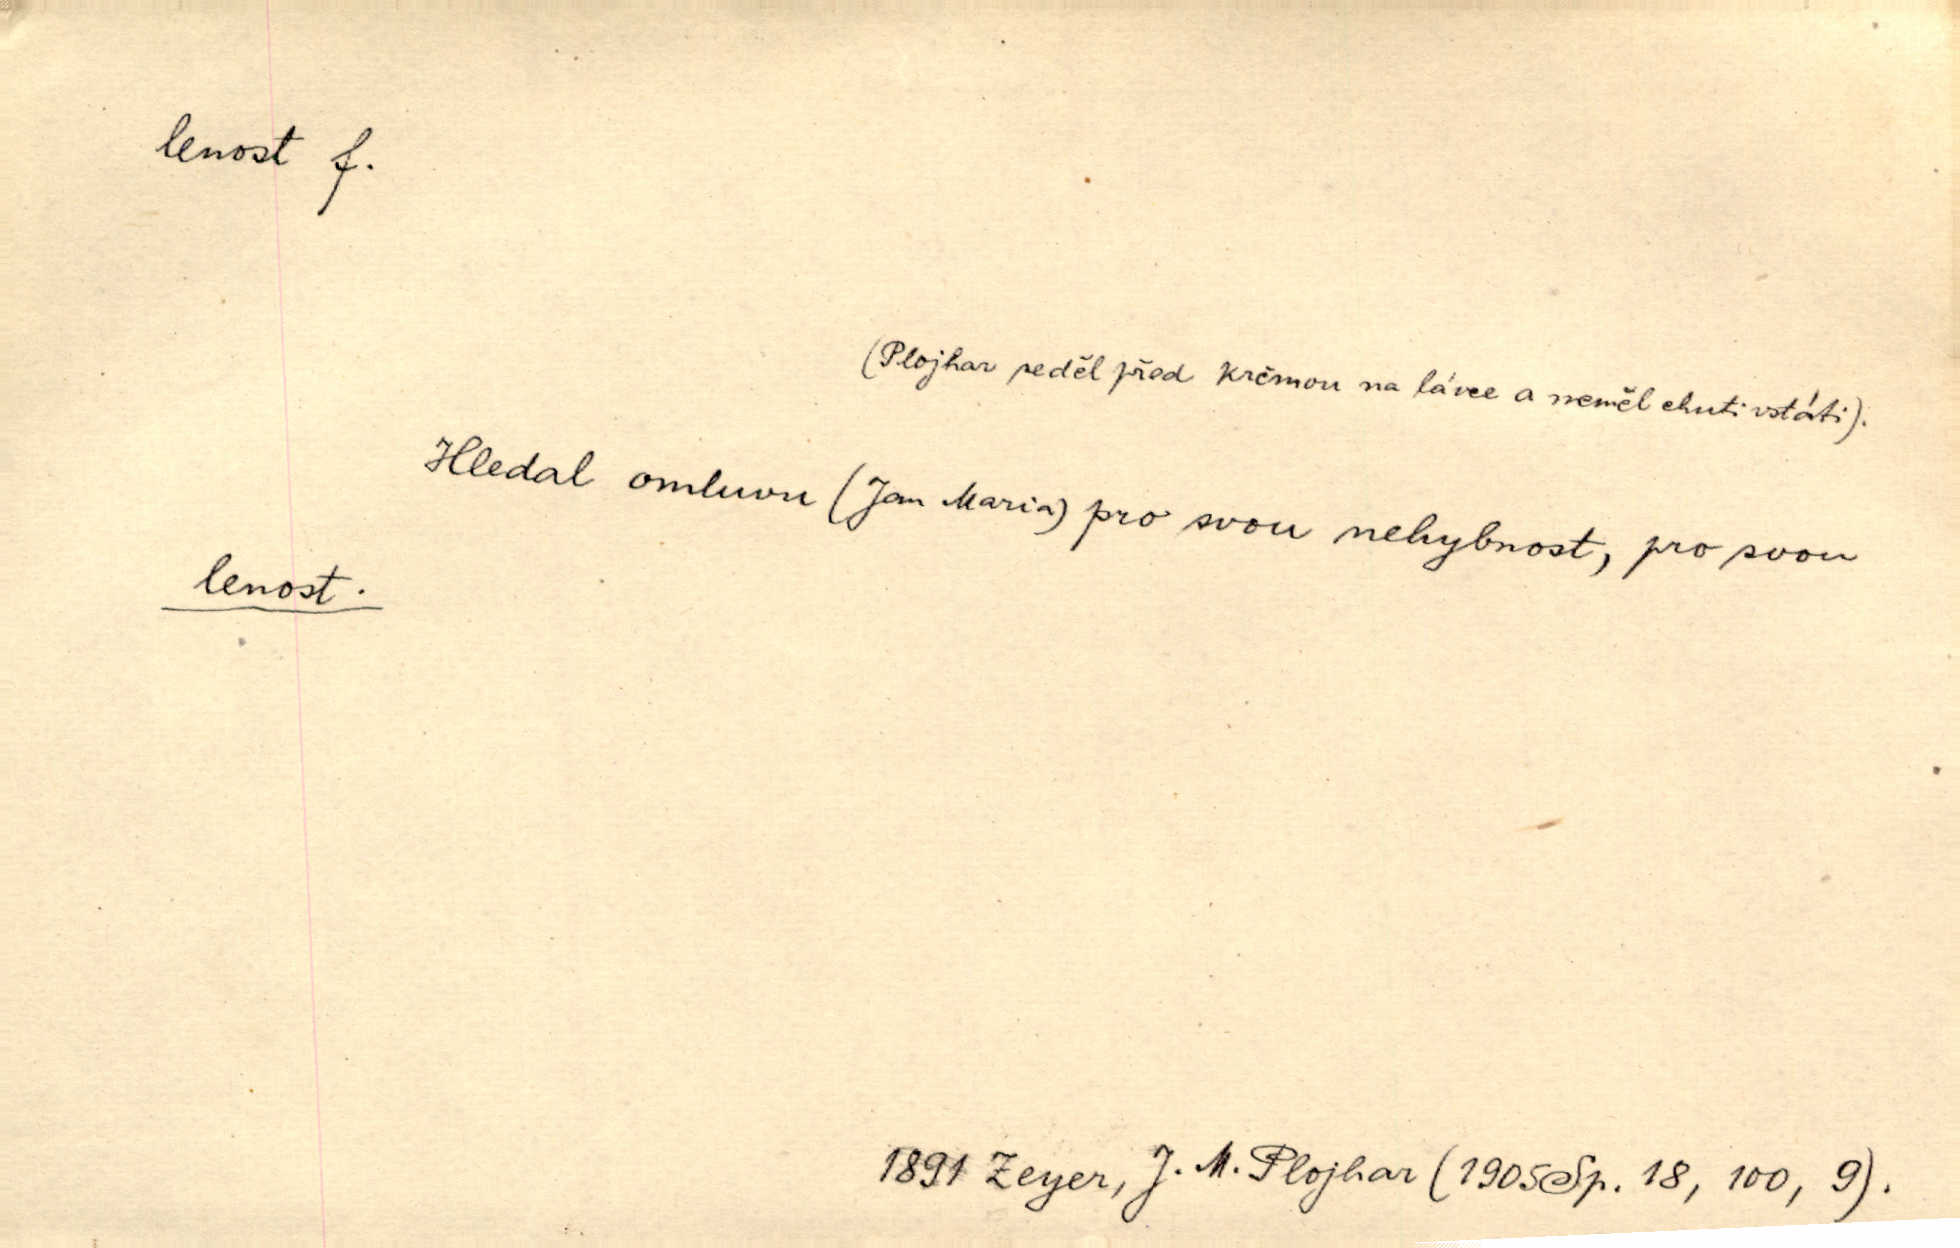 lenost f.
(Plojhar seděl před krčmou na lávce a neměl chuti vstáti).
Hledal omluvu (Jan Maria) pro svou nehybnost, pro svou
lenost.
1891 Zeyer, J. M. Plojhar (1905 Sp. 18, 100, 9).